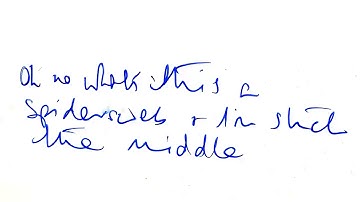 Oh no what this a
spiderweb + I'm stuck
the middle